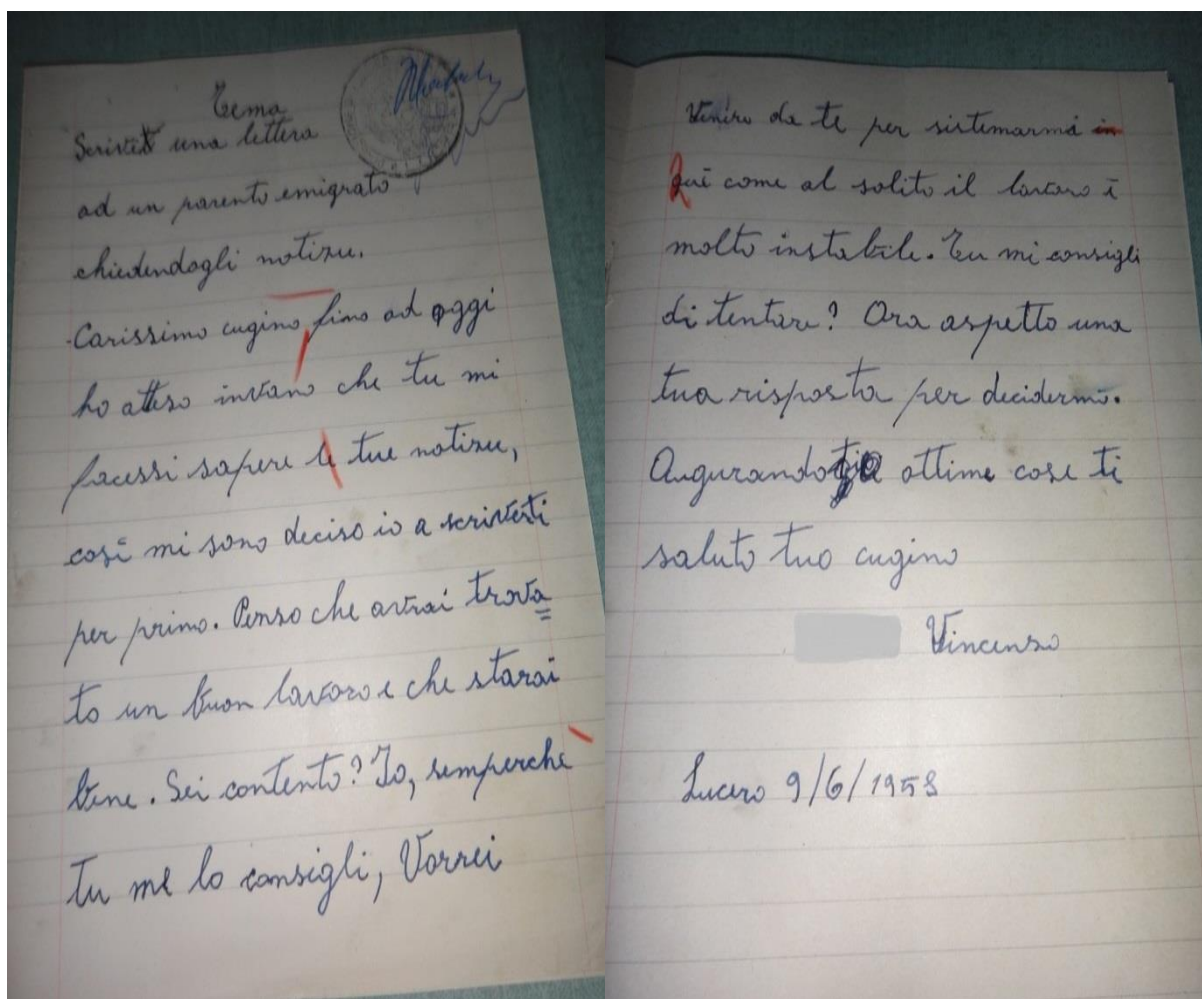 Tema
Scrivete una lettera
ad un parente emigrato
chiedendogli notizie.
Carissimo cugino, fino ad oggi
ho atteso invano che tu mi
facessi sapere le tue notizie,
così mi sono deciso io a scriverti
per primo. Penso che avrai trova
to un buon lavoro e che starai
bene. Sei contento? Io, semperchè
tu me lo consigli, Vorrei
Venire da te per sistemarmi in
Qui come al solito il lavoro è
molto instabile. Tu mi consigli
di tentare? Ora aspetto una
tua risposta per decidermi.
Augurandoti ottime cose ti
saluto tuo cugino
Vincenzo
Lucera 9/6/1958